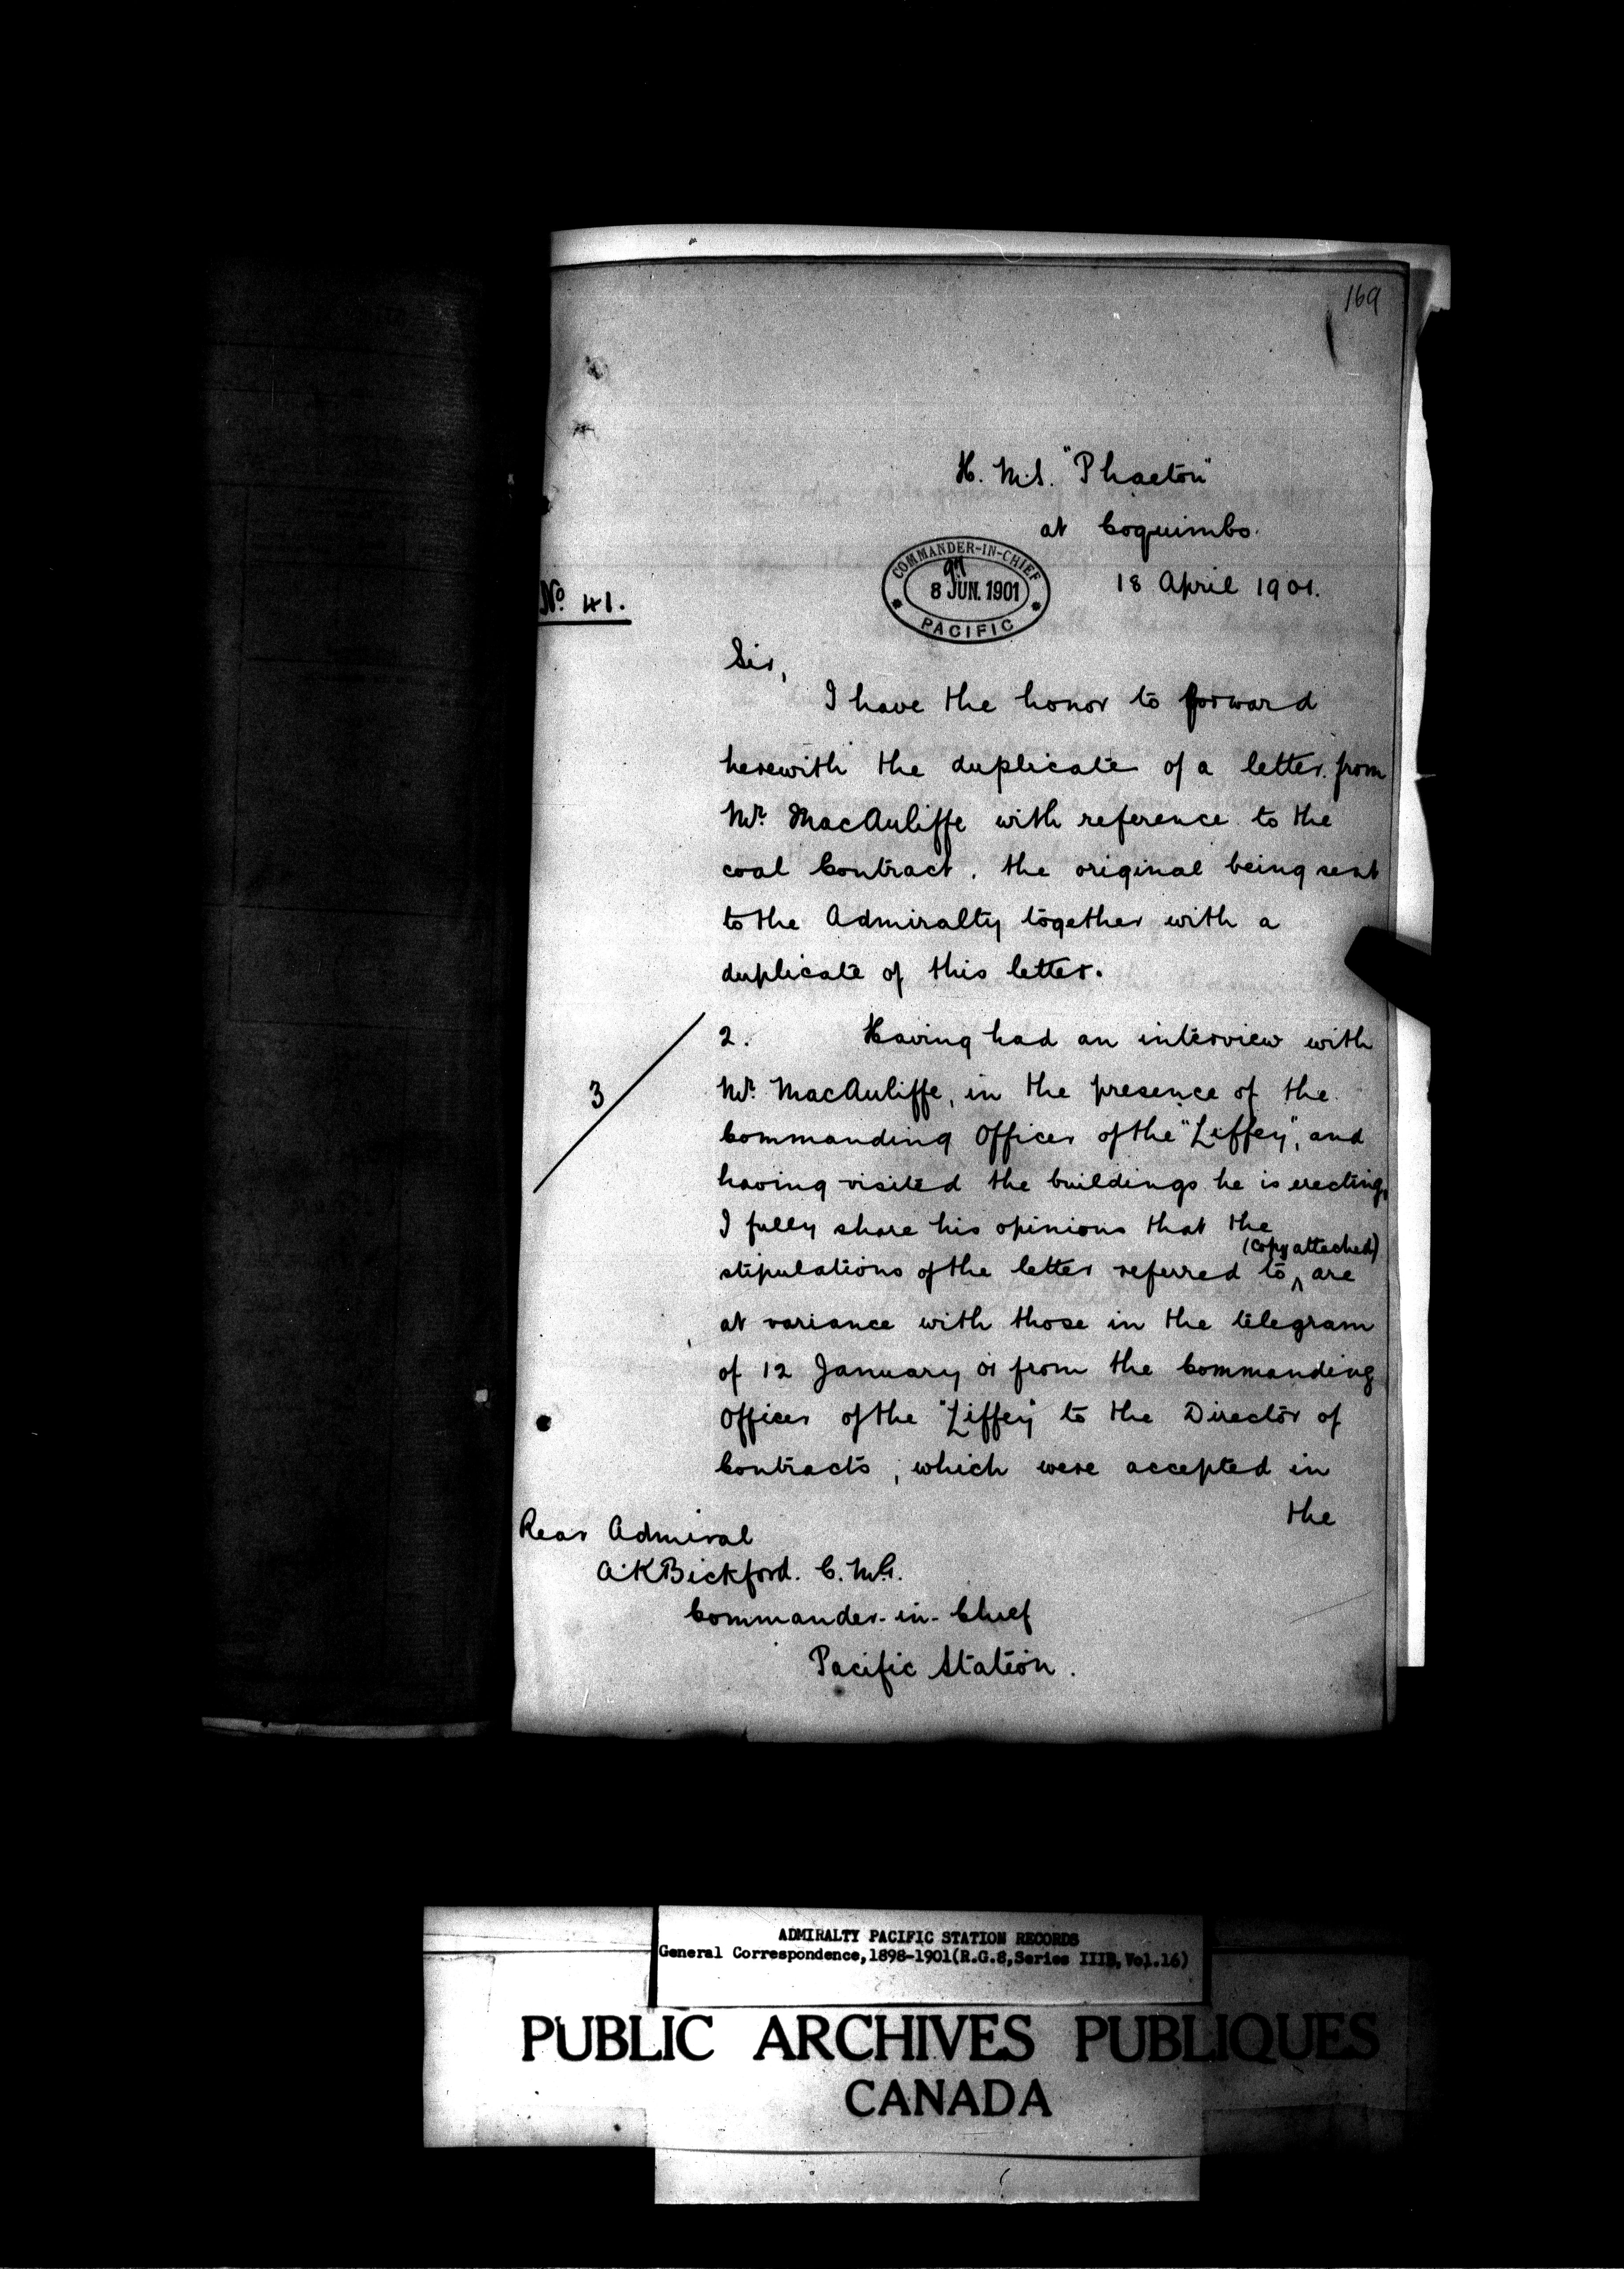 169
H. M. S. "Phaeton"
at Coquimbo.
COMMANDER-IN-CHIEF
97
8 JUN. 1901
PACIFIC
18 April 1901.
No. 41.
Sir,
I have the honor to forward
herewith the duplicate of a letter from
Mr. MacAuliffe with reference to the
coal Contract, the original being sent
to the Admiralty together with a
duplicate of this letter.
3
2. Having had an interview with
Mr. MacAuliffe, in the presence of the
Commanding Officer of the "Liffey", and
having visited the buildings he is erecting,
I fully share his opinions that the
(copy attached)
stipulations of the letter referred to ^ are
at variance with those in the telegram
of 12 January 01 from the Commanding
Officer of the "Liffey" to the Director of
Contracts, which were accepted in
the
Rear Admiral
A. K Bickford. C. M. G.
Commander-in-Chief
Pacific Station.
ADMIRALTY PACIFIC STATION RECORDS
General Correspondence,1898-1901(R.G.8,Series IIIB,Vol.16)
PUBLIC ARCHIVES PUBLIQUES
CANADA